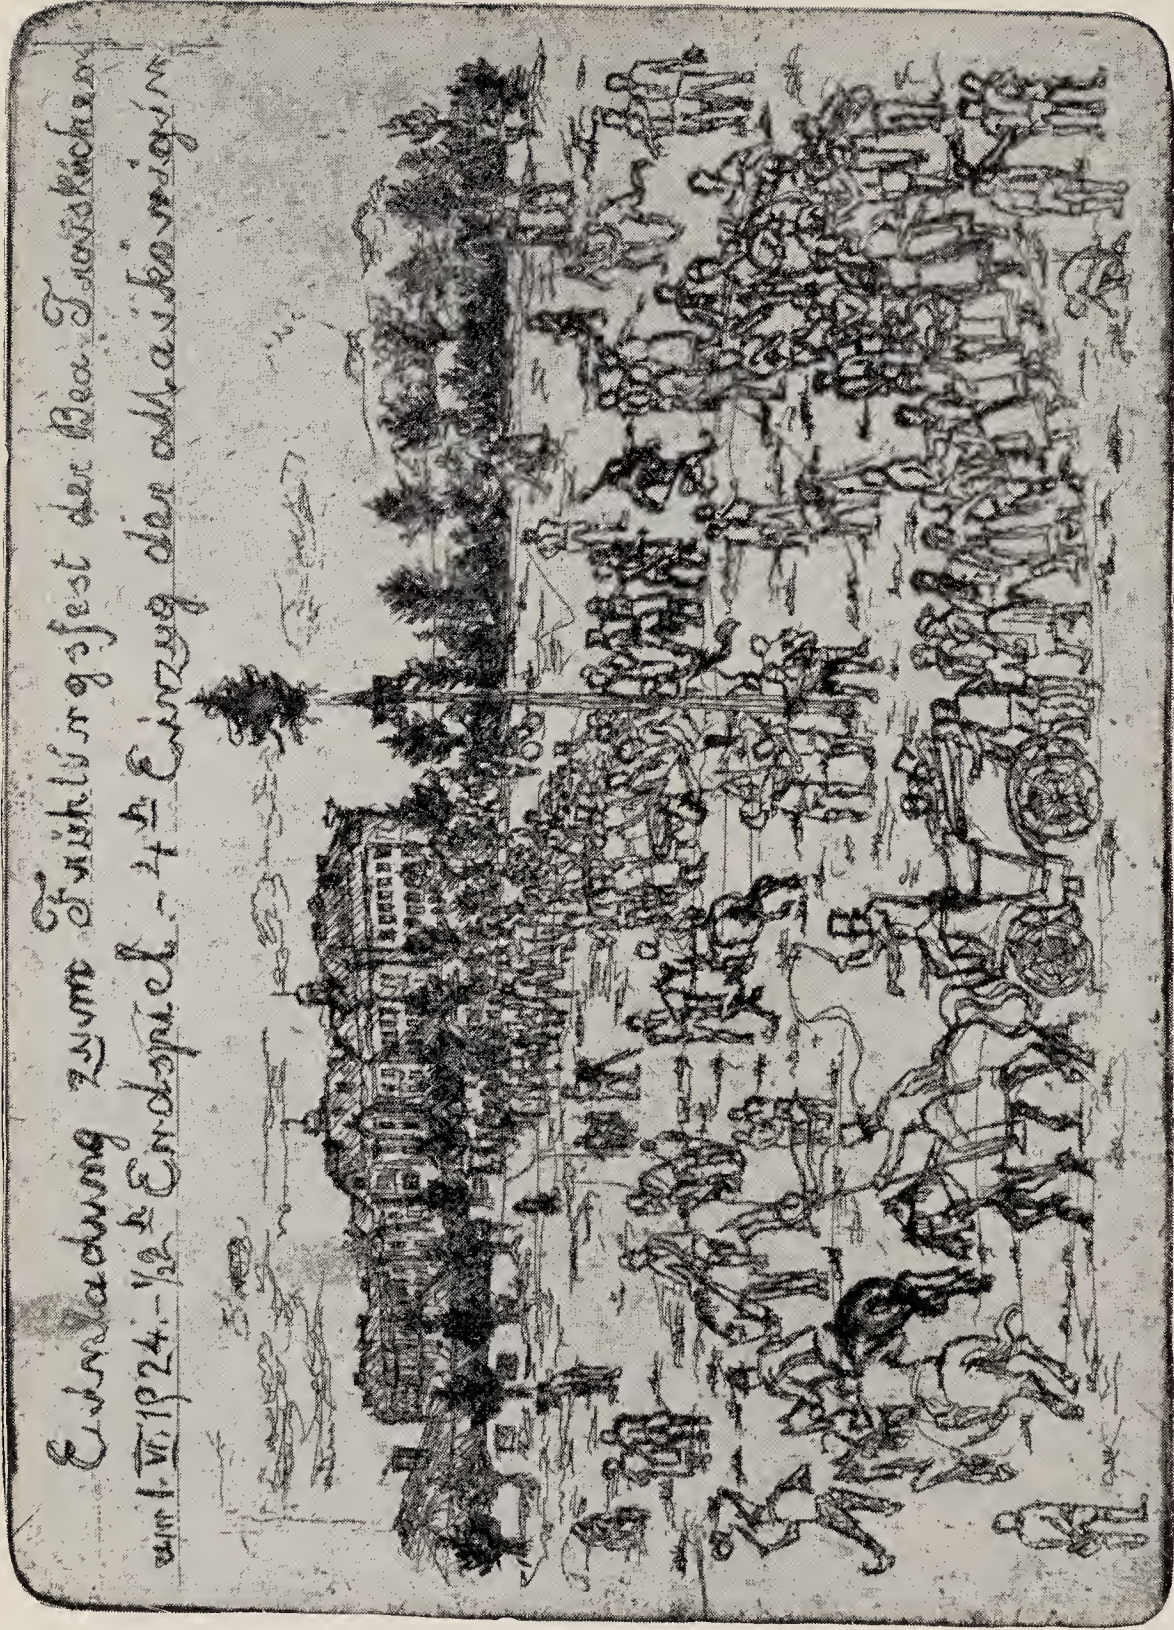 Einladung zum Frühlingsfest der Bea Traiskirchen
am 1.VI.1924.-½2ʰ Endspiel.-4ʰ Einzug der Maikönigin